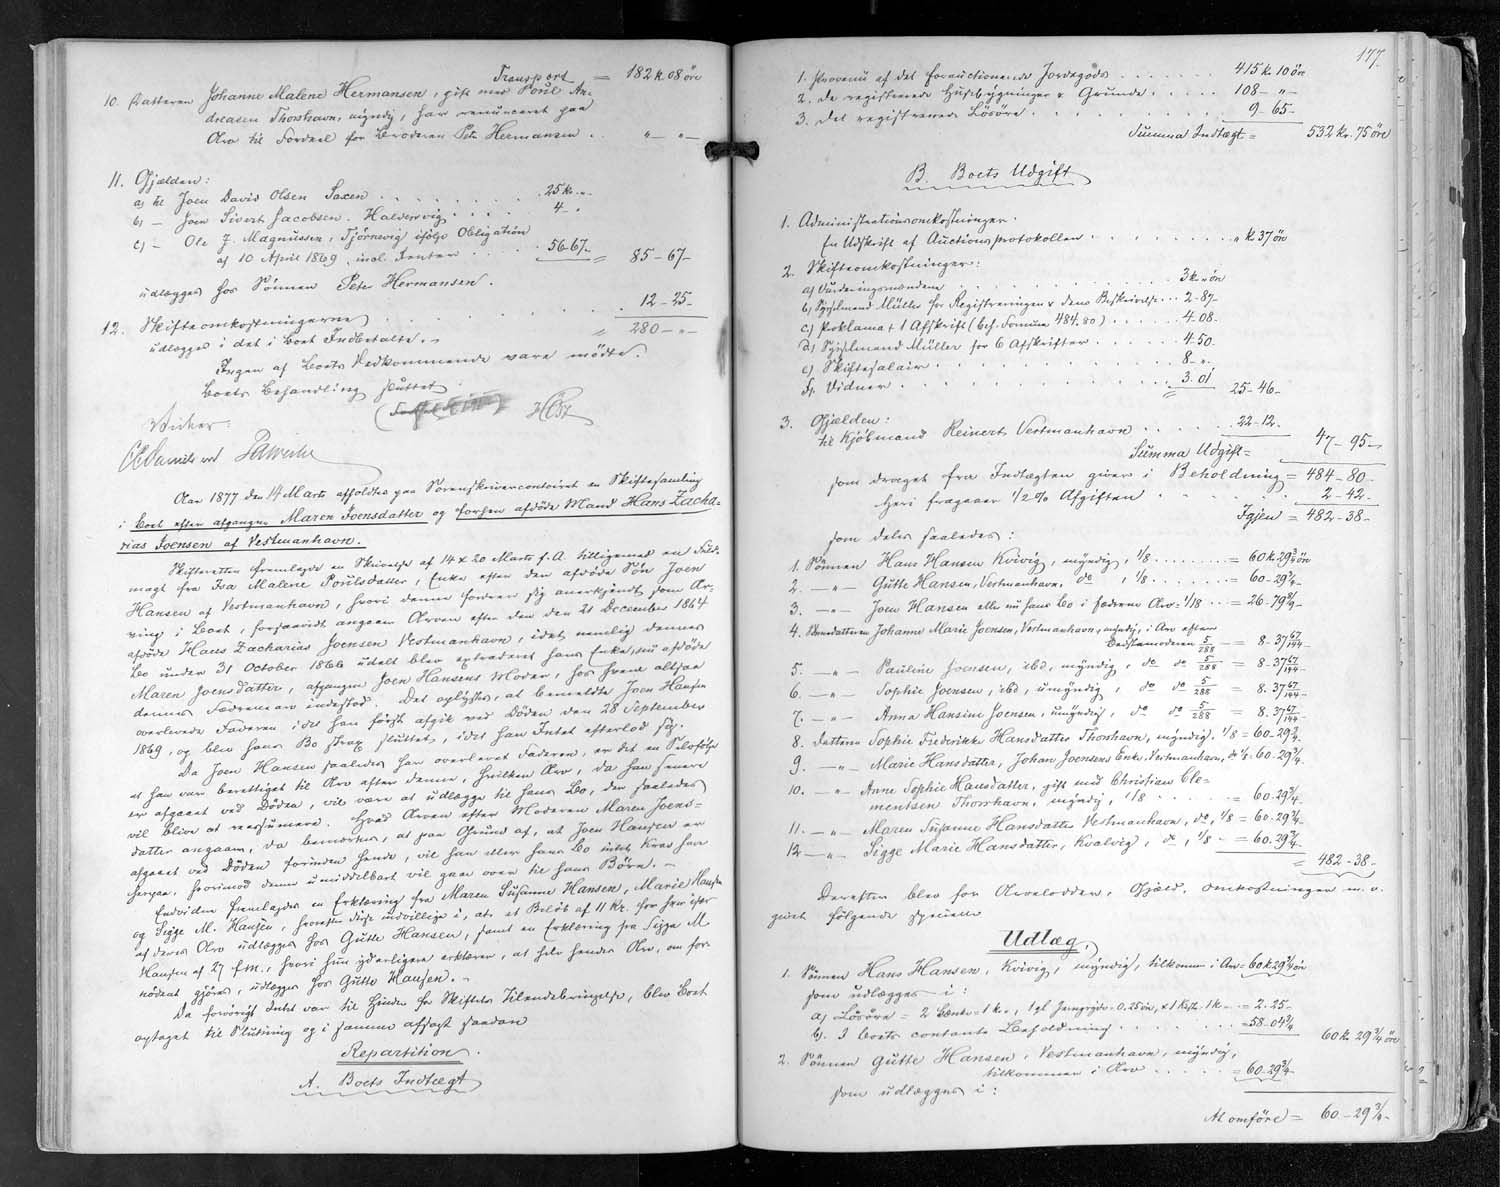 Transport = 182 k. 08 øre
10. Datteren Johanne Malene Hermansen, gift med Poul An-
dreasen Thorshavn, myndig, har renunceret paa
Arv til Fordeel for Broderen Peter Hermansen . . " - " -
11. Gjælden:
a) til Joen David Olsen Saxen . . . . . . 25 k. "
b) - Joen Sivert Jacobsen, Haldersvig . . . . 4 - "
c) - Ole J. Magnussen, Tjørnevig ifølge Obligation
af 10 April 1869, incl. Renter . . . 56.67 = 85-67-
udlægges hos Sønnen Peter Hermansen.
12. Skifteomkostningerne . . . . . 12-25-
udlægges i det i Boet Indbetalte. = 280-"-
Ingen af Boets Vedkommende vare mødte.
Boets Behandling sluttet
Høst
Vidner:
Aar 1877 den 14 Marts afholdtes paa Sorenskrivercontoiret en Skiftesamling
i Boet efter afgangne Maren Joensdatter og forhen afdøde Mand Hans Zacha-
rias Joensen af Vestmanhavn.
Skifteretten fremlagde en Skrivelse af 14 & 20 Marts f. A. tilligemed en Fuld-
magt fra Ida Malene Poulsdatter, Enke efter den afdøde Søn Joen
Hansen af Vestmanhavn, hvori denne fordrer sig anerkjendt som Ar-
ving i Boet, forsaavidt angaar Arven efter den den 21 December 1864
afdøde Hans Zacharias Joensen Vestmanhavn, idet nemlig dennes
Bo under 31 October 1866 udelt blev extraderet hans Enke, nu afdøde
Maren Joensdatter, afgangne Joen Hansens Moder, hos hvem altsaa
dennes Fædrenearv indestod. Det oplystes, at bemeldte Joen Hansen
overlevede Faderen idet han først afgik ved Døden den 28 September
1869, og blev hans Bo strax sluttet, idet han Intet efterlod sig.
Da Joen Hansen saaledes har overlevet Faderen, er det en Selvfølge
at han var berettiget til Arv efter denne, hvilken Arv, da han senere
er afgaaet ved Døden, vil være at udlægge til hans Bo, der saaledes
vil blive at reassumere. Hvad Arven efter Moderen Maren Joens-
datter angaaer, da bemærkes, at paa Grund af, at Joen Hansen er
afgaaet ved Døden forinden hende, vil han eller hans Bo intet Krav have
herpaa, hvorimod denne umiddelbart vil gaa over til hans Børn. -
Endvidere fremlagdes en Erklæring fra Maren Susanne Hansen, Marie Hansen
og Sigge M. Hansen, hvorefter disse indvillige i, at et Beløb af 11 Kr. for hver især
af deres Arv udlægges hos Gutte Hansen, samt en Erklæring fra Sigge M.
Hansen af 27 f.m., hvori hun yderligere erklærer, at hele hendes Arv, om for-
nødent gjøres, udlægges hos Gutte Hansen. -
Da forøvrigt Intet var til Hinder for Skiftets Tilendebringelse, blev Boet
optaget til Slutning og i samme afsagt saadan
Repartition.
A. Boets Indtægt
177.
1. Provenu af det forauctionerede Jordegods . . . . . . 415 k. 10 øre
2. De registrerede Husebygninger & Grunde . . . . . 108 - " -
3. Det registrerede Løsøre . . . . . . . . 9. 65 -
Summa Indtægt = 532 kr. 75 øre
B. Boets Udgift
1. Administrationsomkostninger.
En Udskrift af Auctionsprotokollen . . . . . . . . " k. 37 øre
2. Skifteomkostninger:
a) Vurderingsmændene . . . . . . 3 k. " øre
b) Sysselmand Müller for Registreringen & dens Beskrivelse . . . 2-87-
c) Proklama + 1 Afskrift (beh. Formue 484.80) . . . . . . 4.08-
d) Sysselmand Müller for 6 Afskrifter . . . . . 4-50
e) Skiftesalair . . . . . . 8-"-
f) Vidner . . . . . . 3.01 = 25-46-
3. Gjælden:
til Kjøbmand Reinert Vestmanhavn . . . . . 22-12-
Summa Udgift = 47-95-
som draget fra Indtægten giver i Beholdning = 484-80-
heri fragaaer 1/2 % Afgiften . . . . . . 2-42-
Igjen = 482-38-
som deles saaledes:
1. Sønnen Hans Hansen Kvivig, myndig, 1/8 . . . . . . = 60 k. 29 3/4 øre
2. -"- Gutte Hansen, Vestmanhavn, do, 1/8 . . . . = 60-29 3/4-
3. -"- Joen Hansen eller nu hans Bo i fædrene Arv: 1/18 . . = 26-79 8/9-
4. Sønnedatteren Johanne Marie Joensen, Vestmanhavn, myndig, i Arv efter
Bedstemoderen 5/288 = 8-37 67/144-
5. -"- Pauline Joensen, ibd, myndig, do do 5/288 = 8-37 67/144
6. -"- Sophie Joensen, ibd, umyndig, do do 5/288 = 8.37 67/144
7. -"- Anna Hansine Joensen, umyndig, do do 5/288 = 8.37 67/144-
8. Datteren Sophie Frederikke Hansdatter Thorshavn, myndig, 1/8 = 60-29 3/4-
9. -"- Marie Hansdatter, Johan Joensens Enke, Vestmanhavn, do 1/8 = 60.29 3/4-
10. -"- Anne Sophie Hansdatter, gift med Christian Cle-
mentsen Thorshavn, myndig, 1/8 . . . . . . = 60.29 3/4-
11. -"- Maren Susanne Hansdatter Vestmanhavn, do, 1/8 = 60.29 3/4-
12 -"- Sigge Marie Hansdatter, Kvalvig, do, 1/8 . = 60.29 3/4-
= 482-38-
Derefter blev for Arvelodder, Gjæld, Omkostninger m. v.
gjort følgende specielle
Udlæg.
1. Sønnen Hans Hansen, Kvivig, myndig, tilkommer i Arv = 60 k 29 3/4 øre
som udlægges i:
a) Løsøre = 2 Bænke 1 k. ", 1 gl. Jerngryde 0.25 øre, & 1 Kiste 1 k - . = 2.25-
b) I Boets contante Beholdning . . . . . . = 58.04 3/4 60 k. 29 3/4 øre
2. Sønnen Gutte Hansen, Vestmanhavn, myndig,
tilkommer i Arv . . . . . = 60-29 3/4-
som udlægges i:
At omføre = 60-29 3/4-